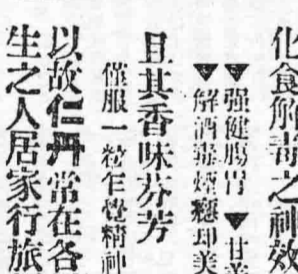 化食解毒之神效
▼强健腸胃▼甘美
▼解酒毒煙癮却美
且其香味芬芳
僅服一粒乍覺精神
以故仁丹常在各
生之人居家行旅